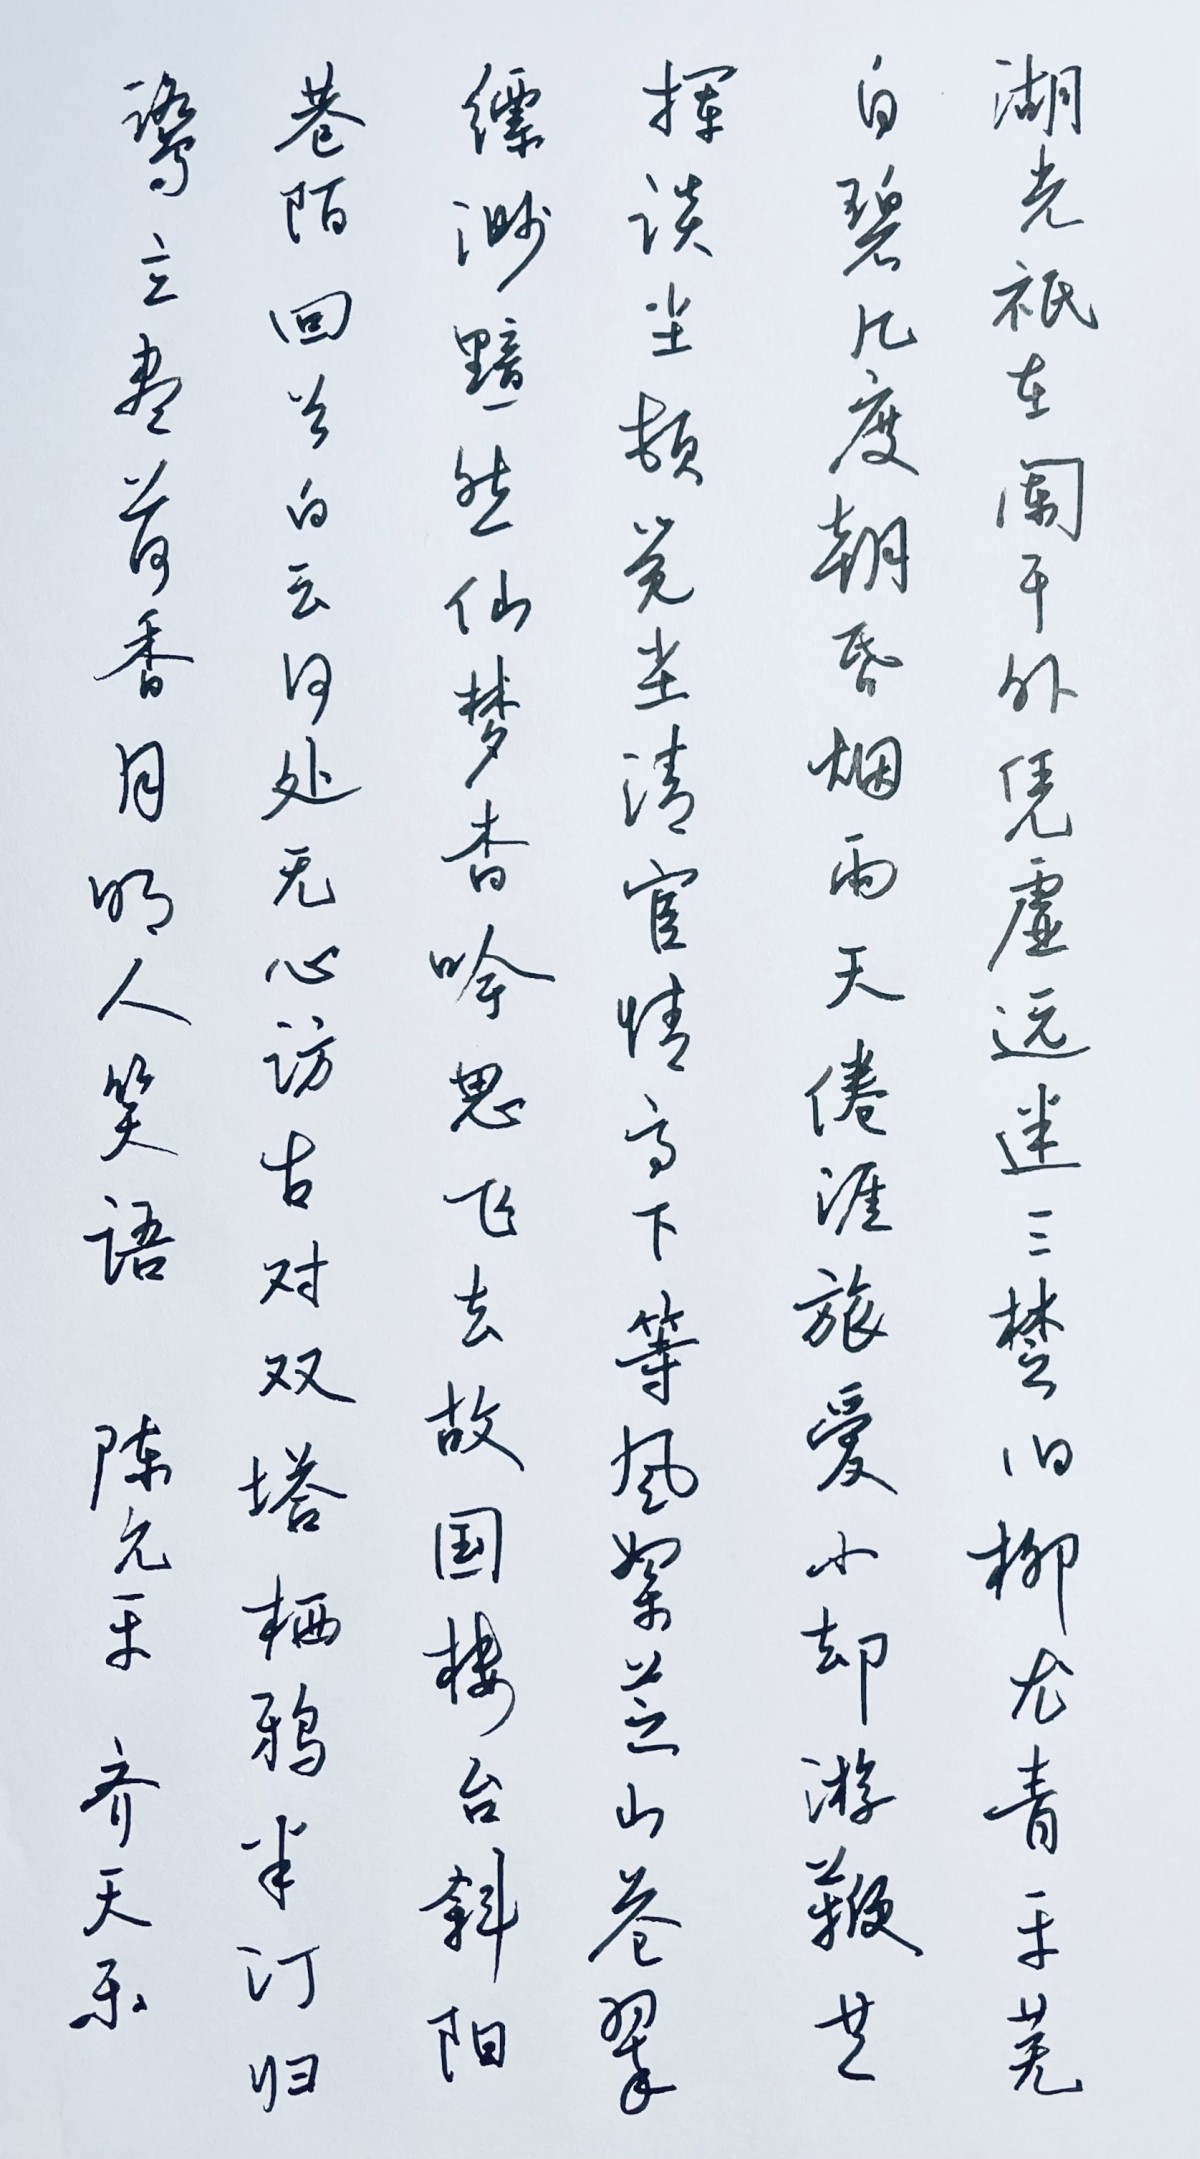 湖光祇在阑干外凭虚远迷三楚旧柳尤青平芜
自碧几度朝昏烟雨天倦涯旅爱小却游鞭共
挥谈尘顿觉尘清宦情高下等风絮芝山苍翠
缥渺黯然仙梦杳吟思飞去故国楼台斜阳
巷陌回首白云何处无心访古对双塔栖鸦半汀归
鹭立尽荷香月明人笑语 陈允平 齐天乐